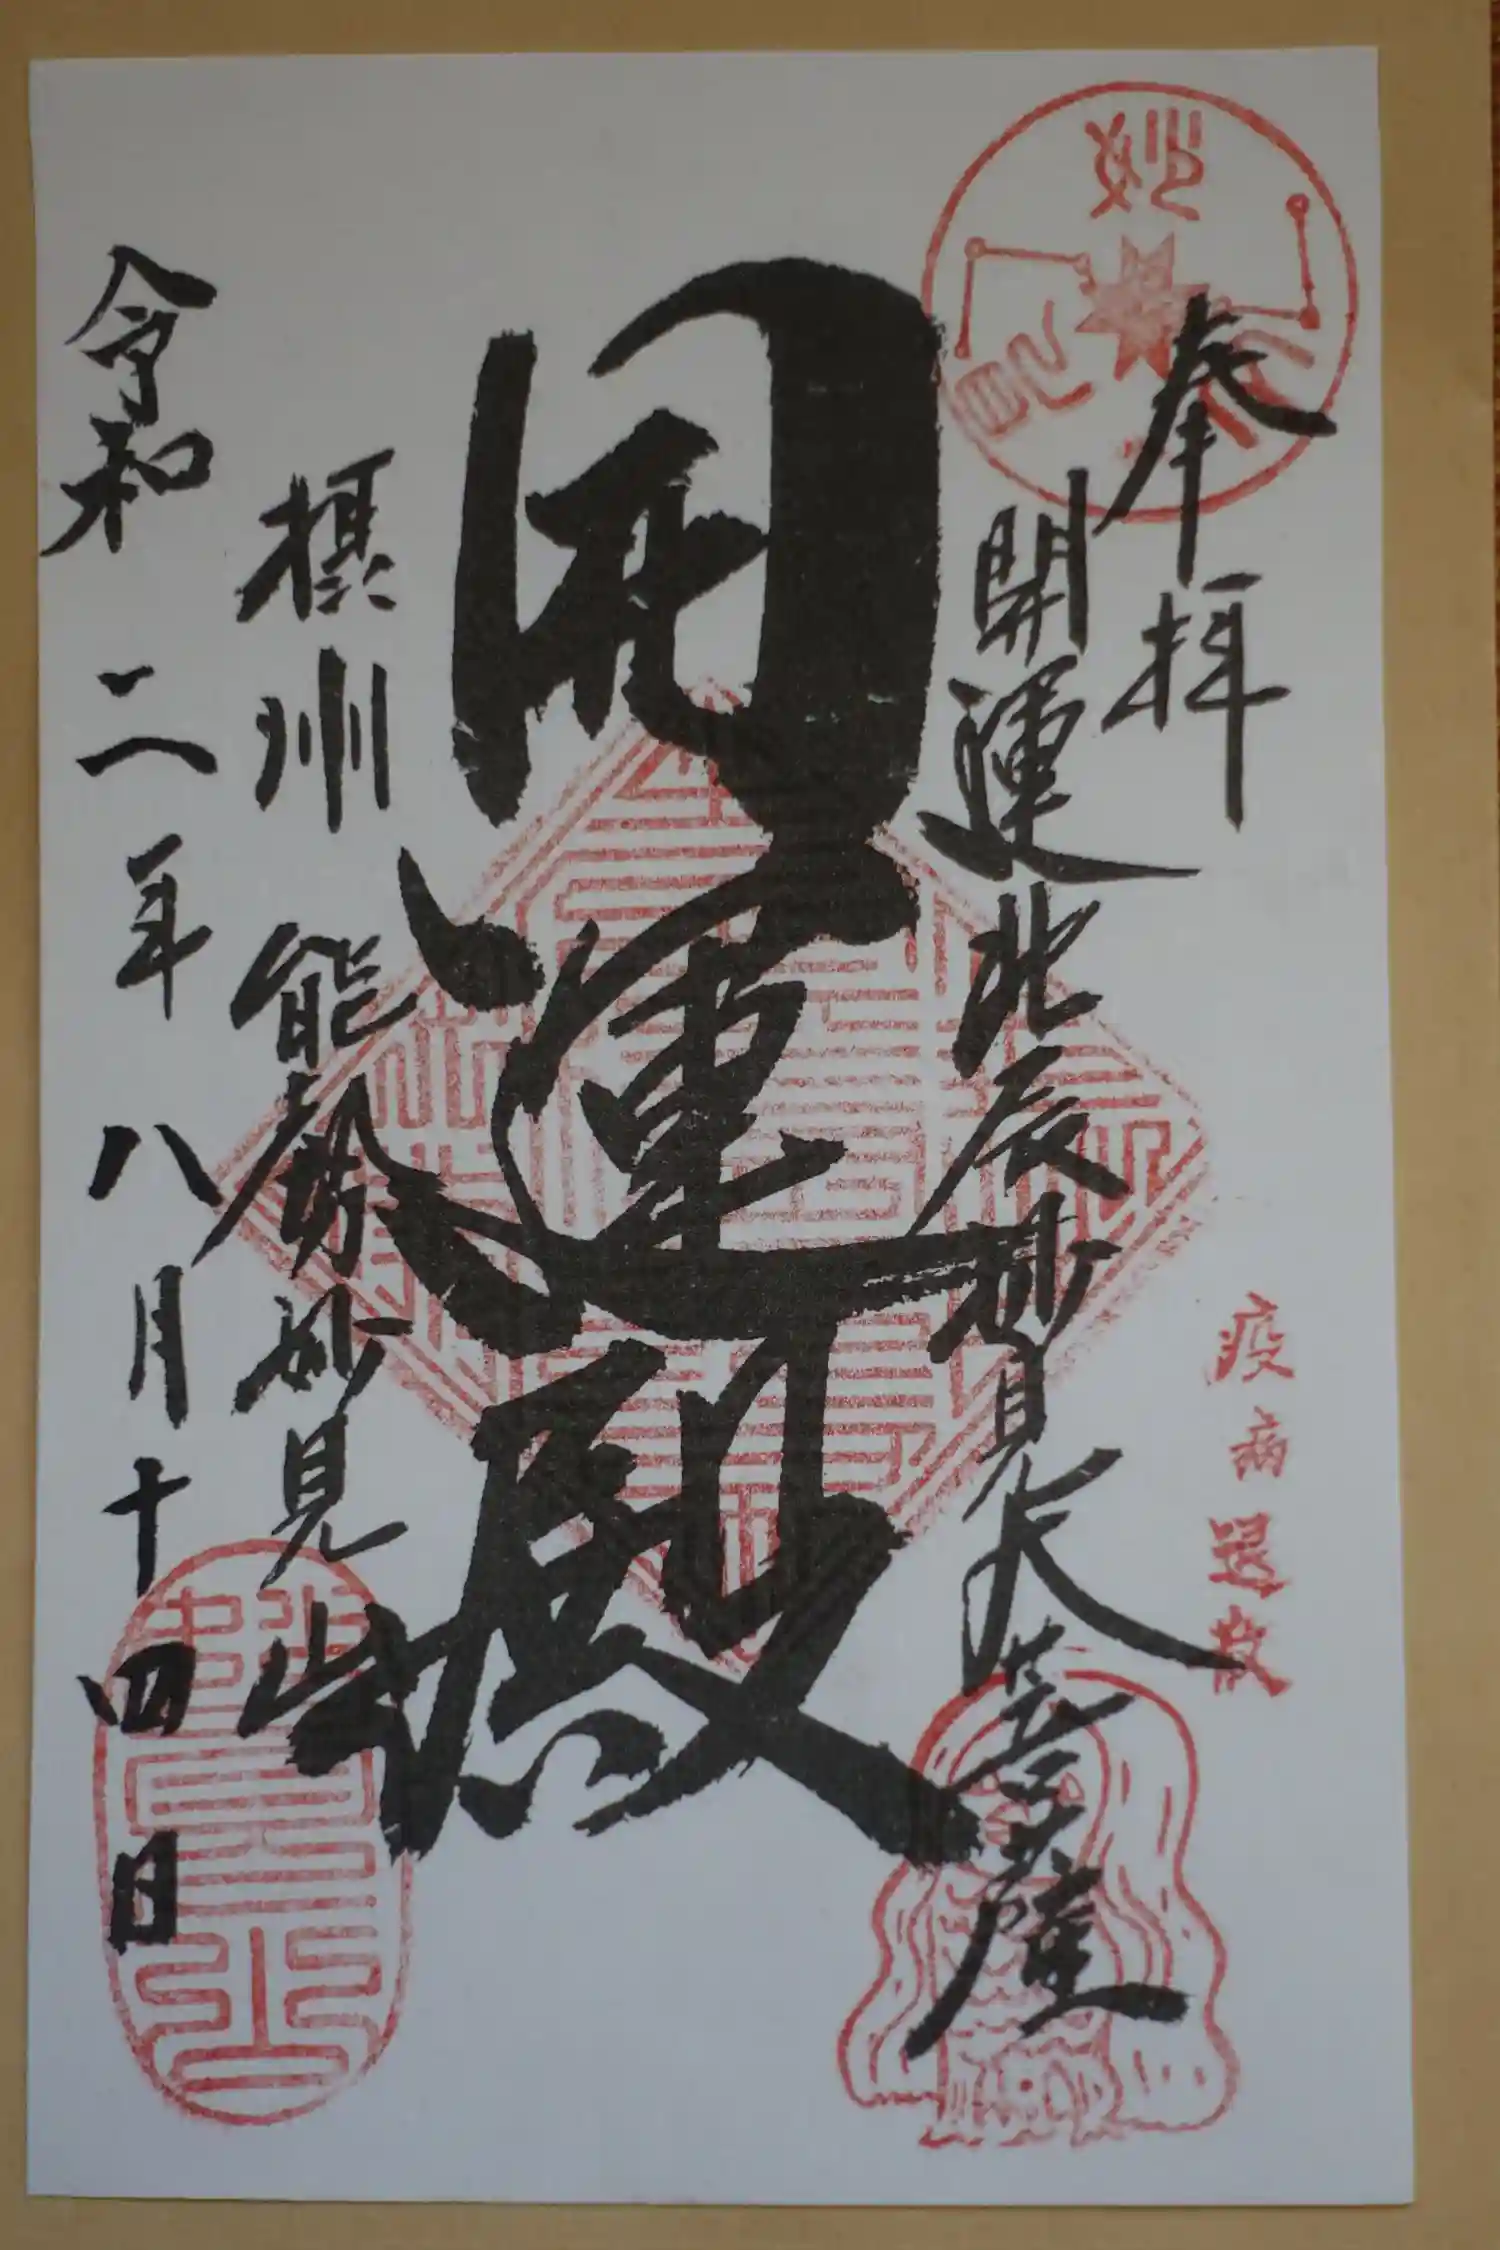 奉拝
疫病退散
開運北辰妙見大菩薩
開運殿
摂州 能勢妙見山
令和二年八月十四日
妙見山